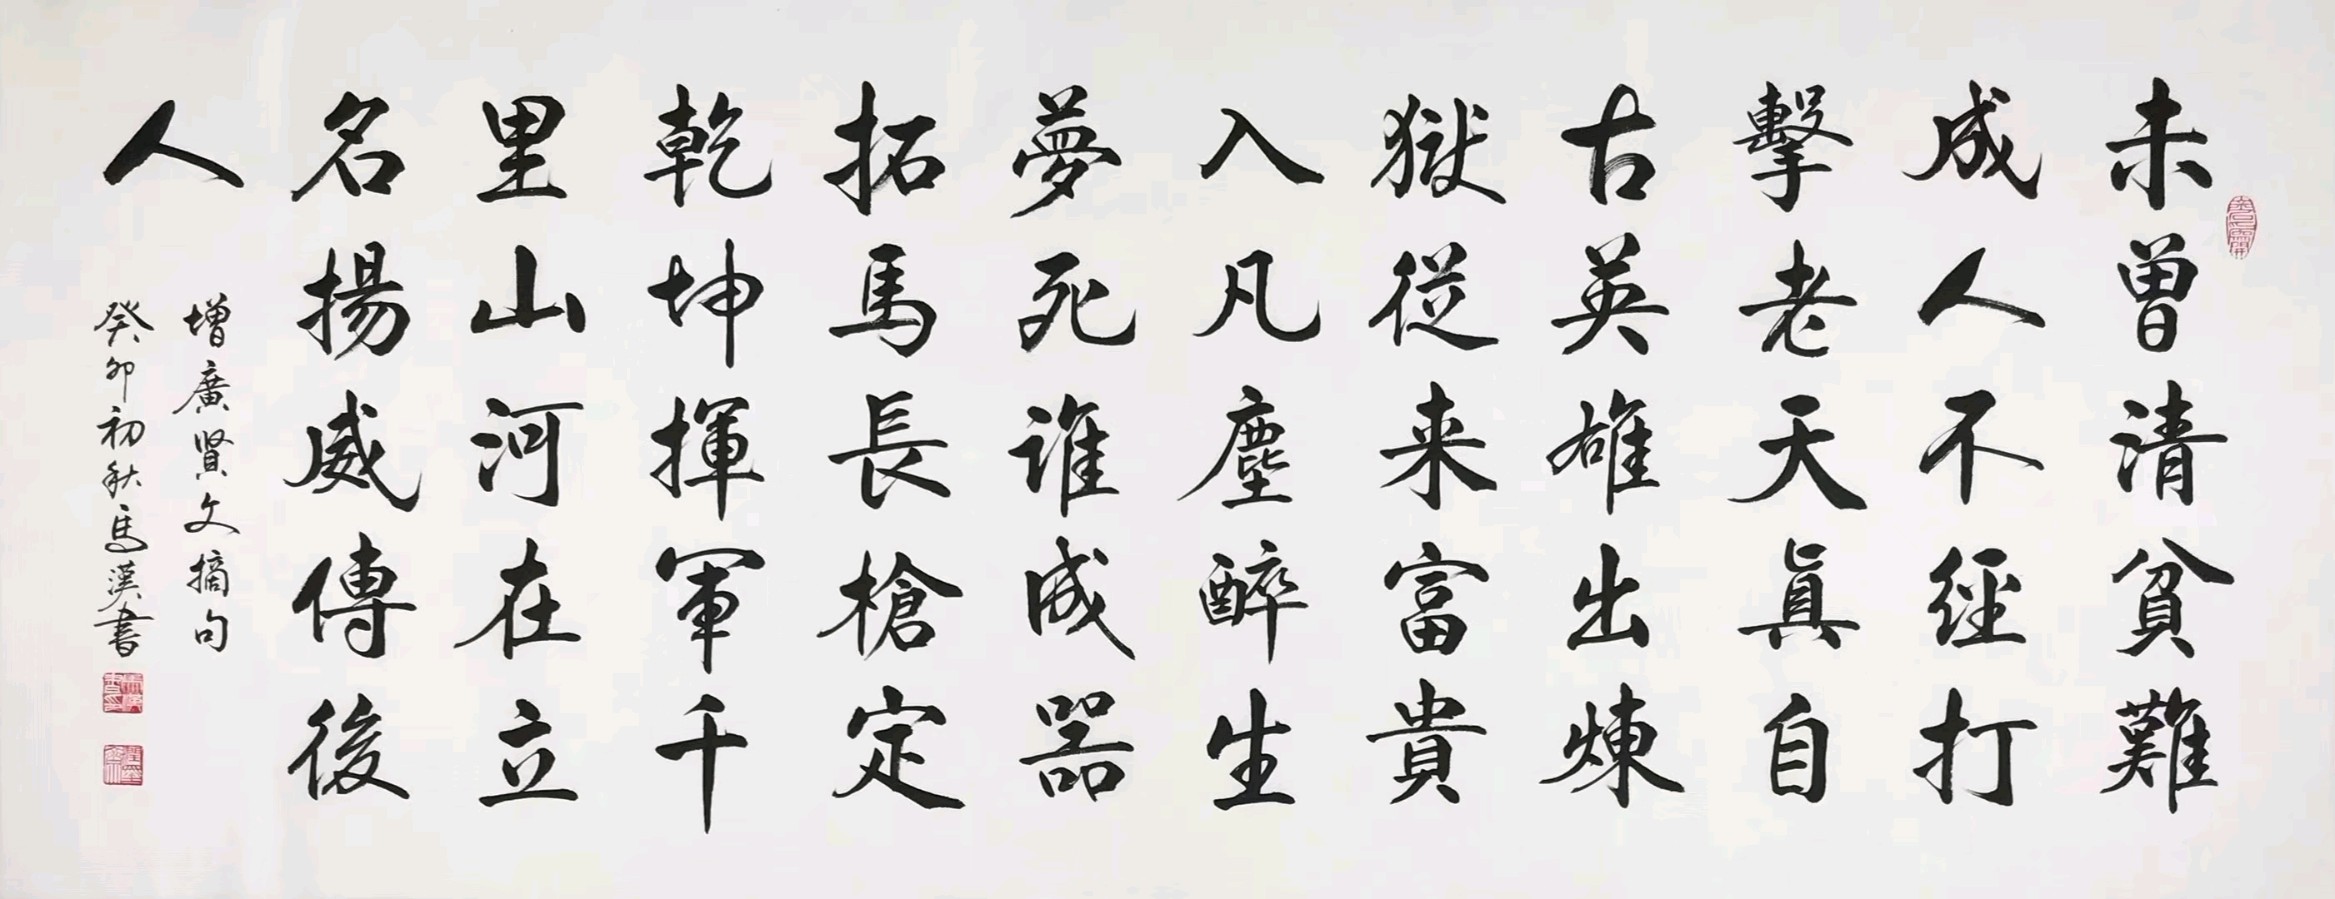 未曽清貧難
成人不經打
擊老天眞自
古英雄出煉
獄從来富貴
入凡塵醉生
夢死誰成器
拓馬長槍定
乾坤揮軍千
里山河在立
名揚威傳後
人
增廣賢文摘句
癸卯初秋馬漢書